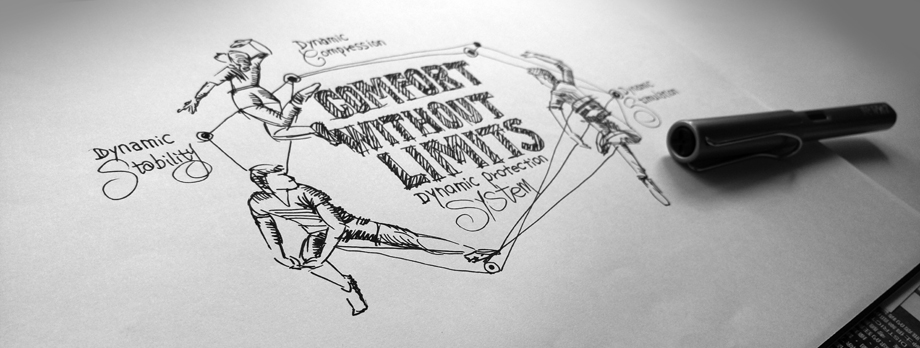 Dynamic
Compression
COMFORT
WITHOUT
LIMITS
Dynamic
Stability
Dynamic Protection
System